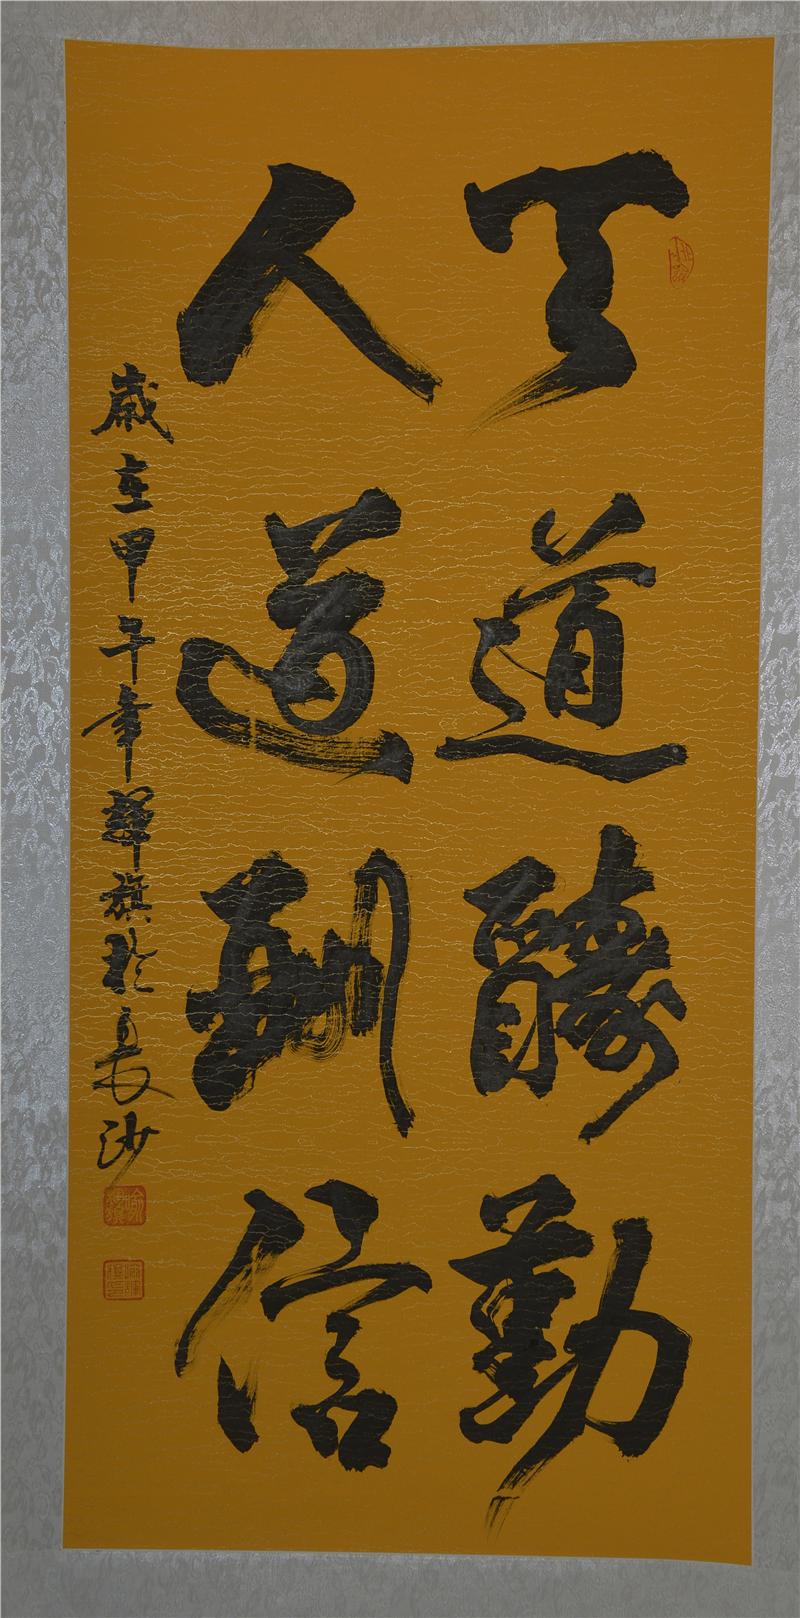 天道酬勤
人道酬信
歲在甲午年輝旗於長沙